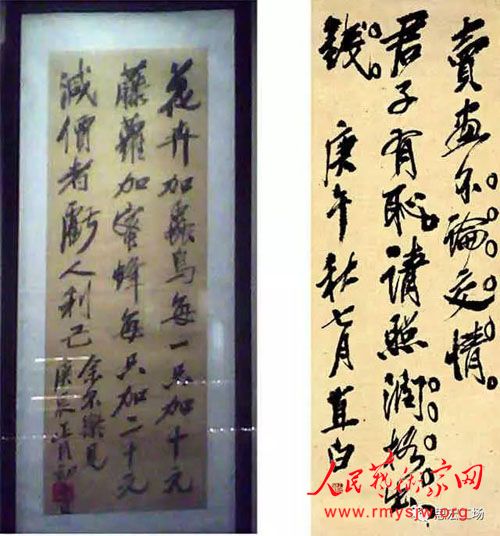 花卉加蟲鳥每一只加十元
藤蘿加蜜蜂每只加二十元
減價者虧人利己
余不樂見
庚辰正月初
賣畫不論交情
君子有恥請照潤格出
錢 庚午秋七月直白
人民藝術家网
www.rmysjw.com